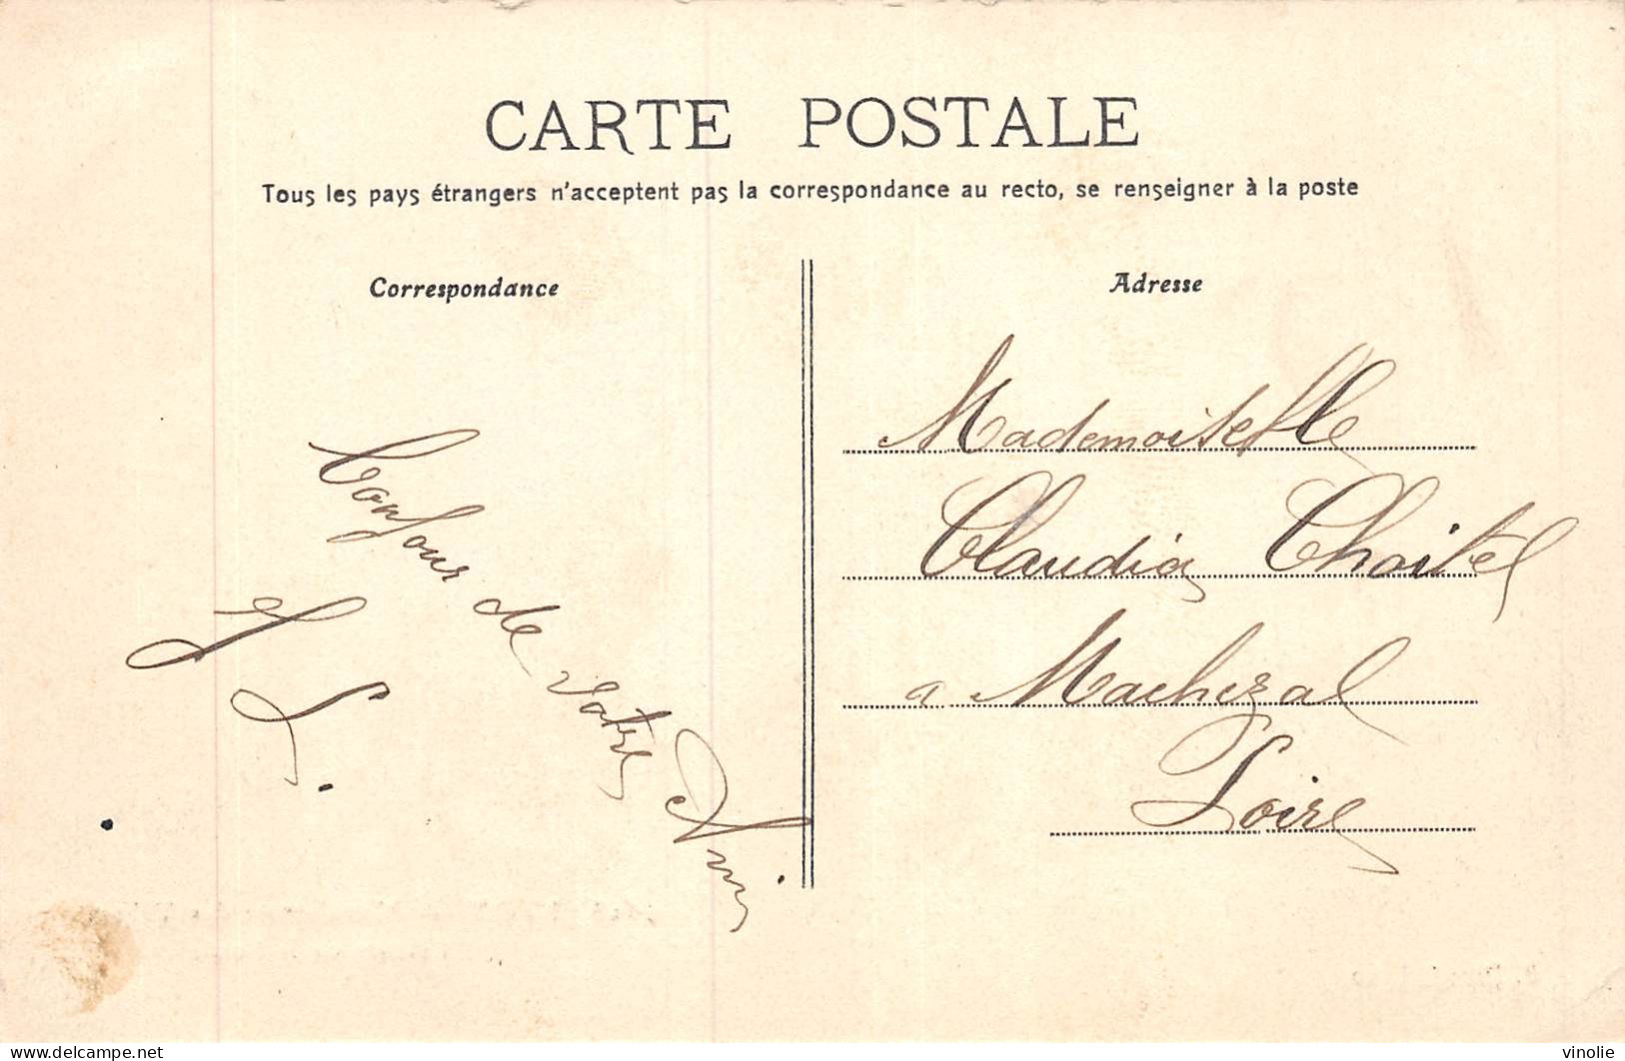 CARTE POSTALE
Tous les pays étrangers n'acceptent pas la correspondance au recto, se renseigner à la poste
Correspondance
Bonjour de votre Ami
J L.
Adresse
Mademoiselle
Claudia Choitel
a Machezal
Loire
delcampe.net
vinolie